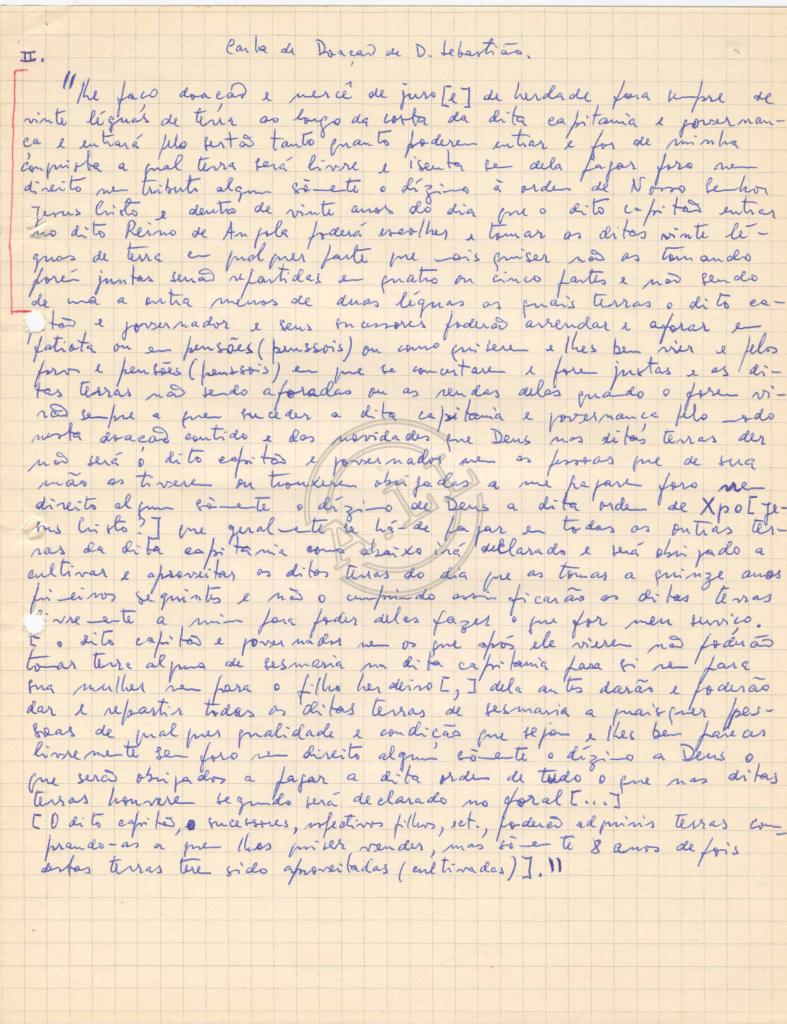 II. Carta de Doação de D. Sebastião.
"lhe faço doação e mercê de juro [e] de herdade para sempre de
vinte léguas de terra ao longo da costa da dita capitania e governan-
ça e entrará pelo sertão tanto quanto poderem entrar e for de minha
conquista a qual terra será livre e isenta sem dela pagar foro nem
direito nem tributo algum sòmente o dízimo à ordem de Nosso Senhor
Jesus Cristo e dentro de vinte anos do dia que o dito capitão entrar
no dito Reino de Angola poderá escolher e tomar as ditas vinte lé-
guas de terra em qualquer parte que mais quiser não as tomando
porém juntas senão repartidas em quatro ou cinco partes e não sendo
de uma a outra menos de duas léguas as quais terras o dito ca-
tão e governador e seus sucessores poderão arrendar e aforar em
fatiota ou em pensões (penssois) ou como quiserem e lhes bem vier e pelos
foros e pensões (penssois) em que se concertarem e forem justas e as di-
tas terras não sendo aforadas ou as rendas delas quando o forem vi-
rão sempre a quem suceder a dita capitania e governança pelo modo
nesta doação contido e das novidades que Deus nas ditas terras der
não será o dito capitão e governador nem as pessoas que de sua
mão as tiverem ou trouxerem obrigadas a me pagarem foro nem
direito algum sòmente o dízimo de Deus a dita ordem de Xpo [Je-
sus Cristo?] que geralmente se há-de pagar em todas as outras ter-
ras da dita capitania como abaixo irá declarado e será obrigado a
cultivar e aproveitar as ditas terras do dia que as tomar a quinze anos
primeiros seguintes e não o cumprindo assim ficarão as ditas terras
livremente a mim para poder delas fazer o que for meu serviço.
E o dito capitão e governador nem os que após ele vierem não poderão
tomar terra alguma de sesmaria na dita capitania para si nem para
sua mulher nem para o filho herdeiro [,] dela antes darão e poderão
dar e repartir todas as ditas terras de sesmaria a quaisquer pes-
soas de qualquer qualidade e condição que sejam e lhes bem parecer
livremente sem foro nem direito algum sòmente o dízimo a Deus o
que serão obrigados a pagar a dita ordem de tudo o que nas ditas
terras houverem segundo será declarado no foral [...]
[O dito capitão, sucessores, respectivos filhos, ect., poderão adquirir terras com-
prando-as a quem lhes quiser vender, mas sòmente 8 anos depois
destas terras terem sido aproveitadas (cultivadas)]."